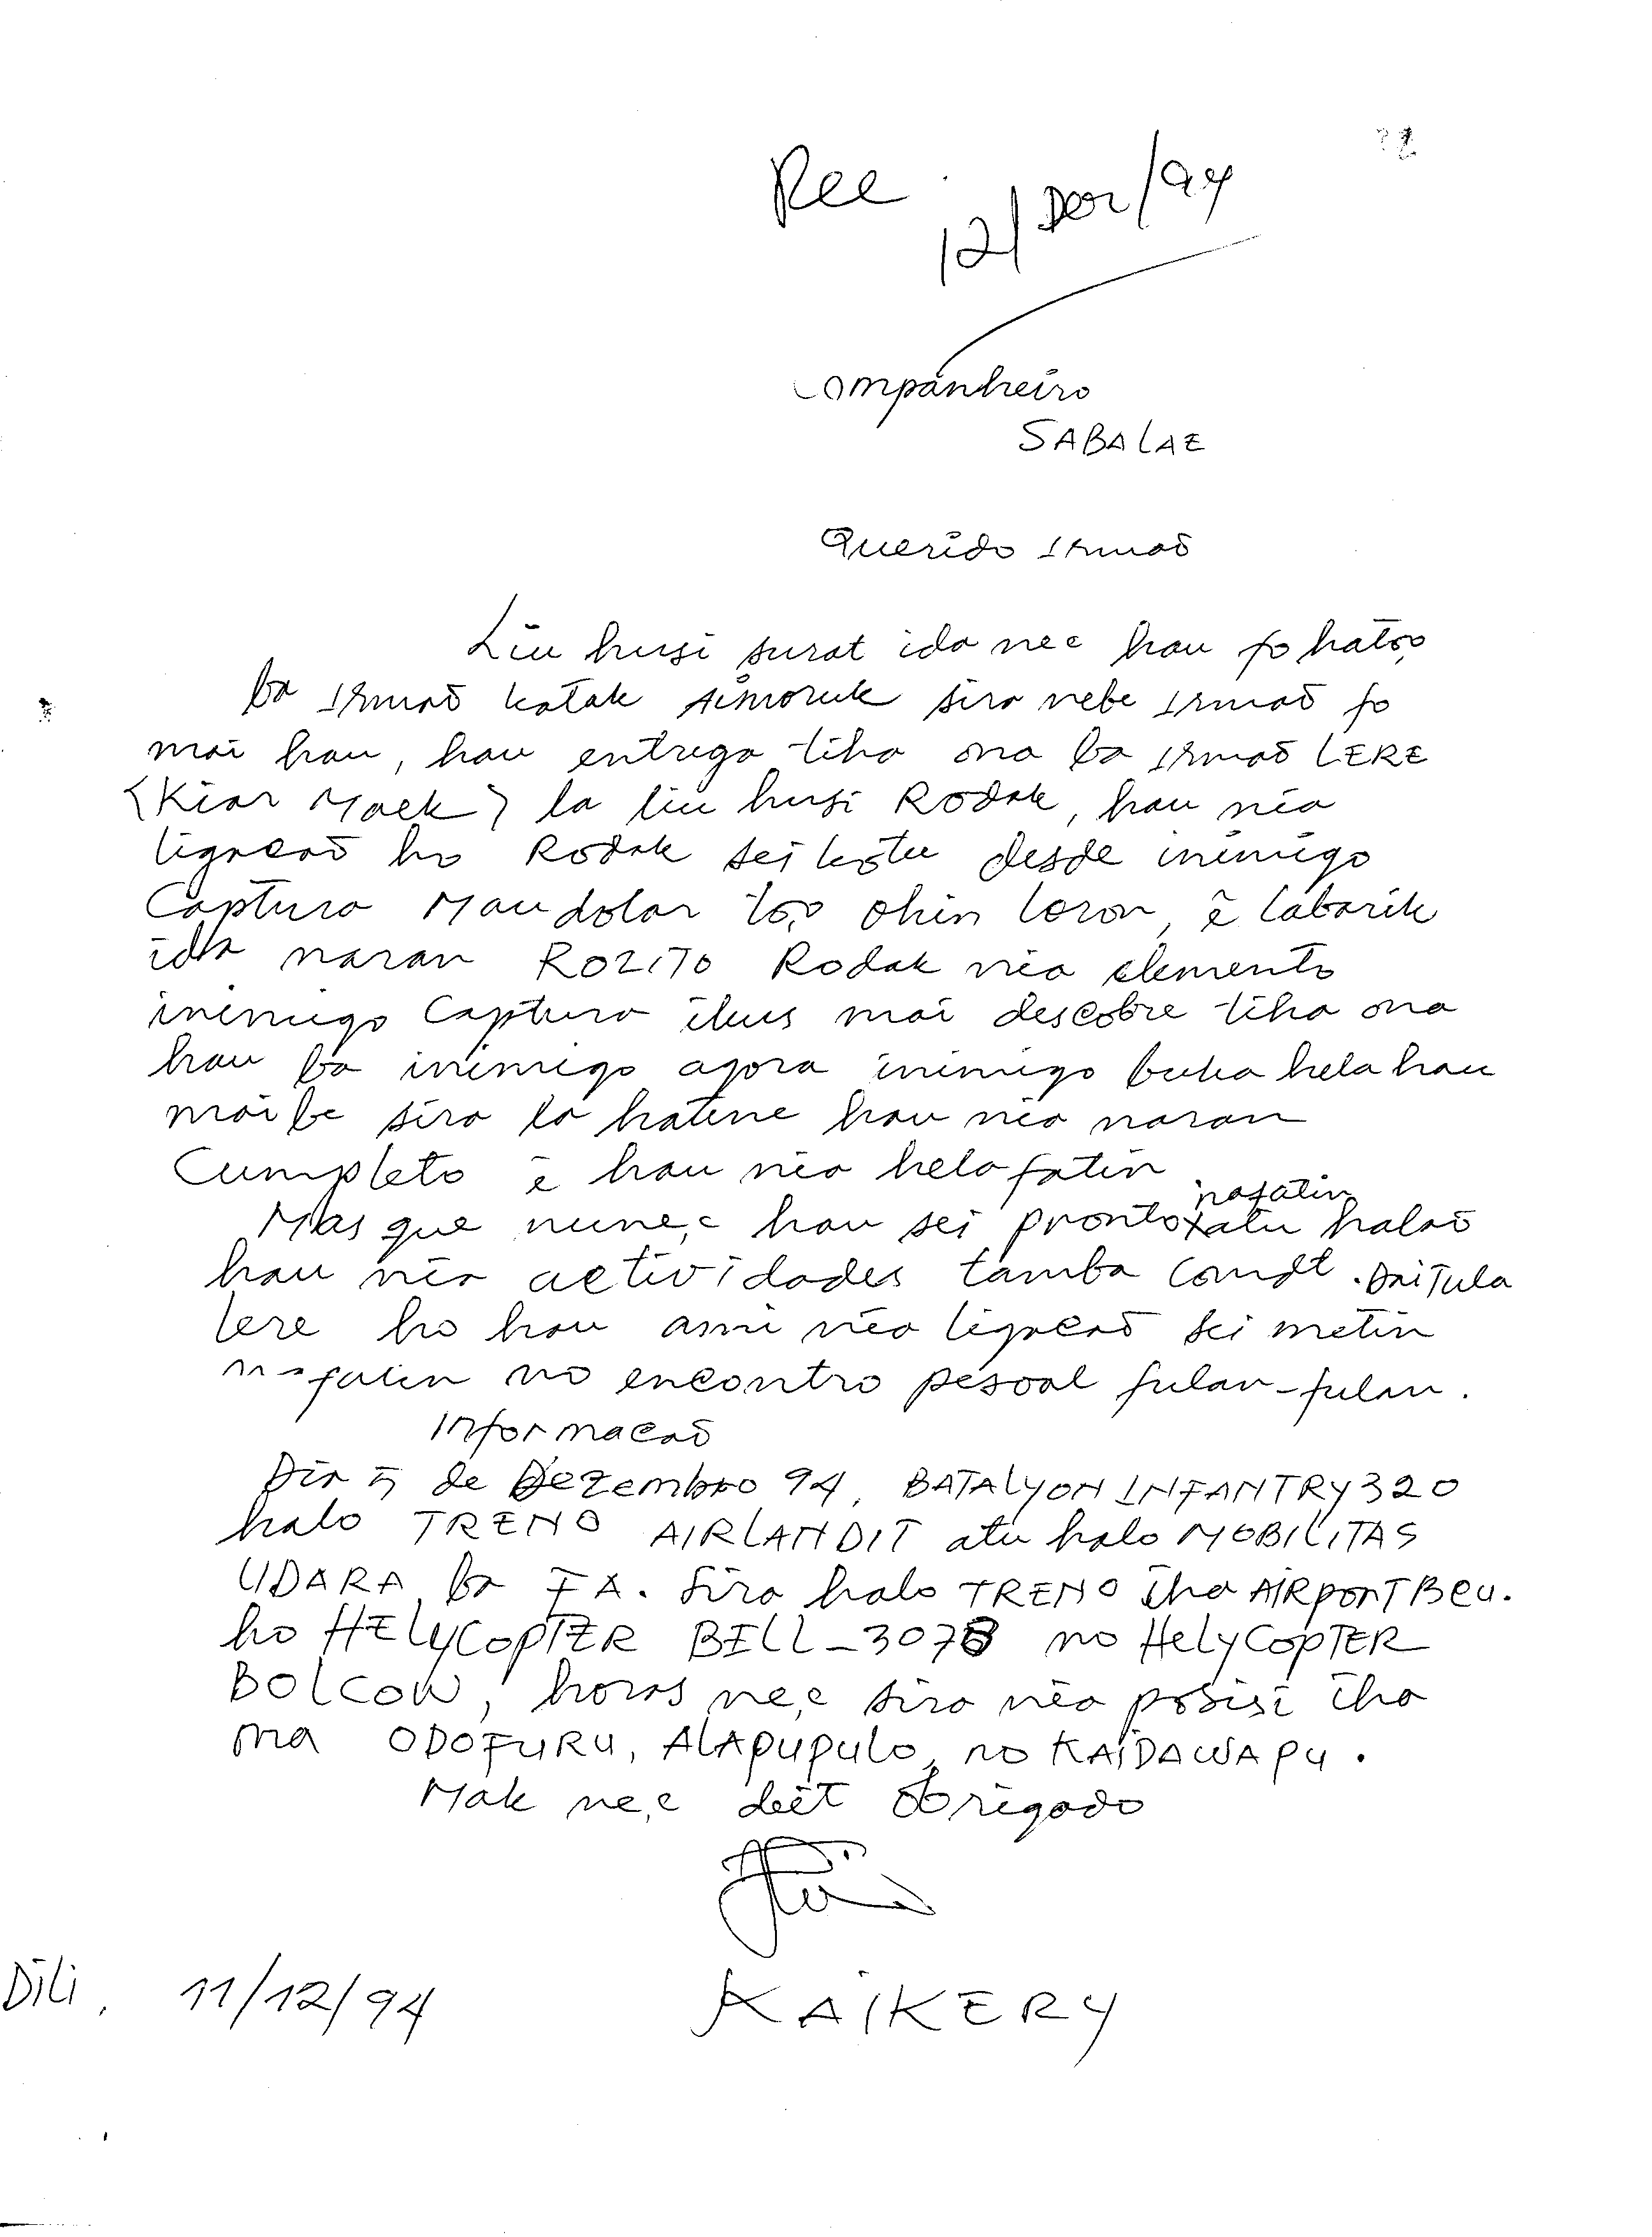 Rec.
12/Dez/94
Companheiro
SABALAE
Querido Irmaõ
Liu husi surat ida ne e hau fo hatoo
ba Irmaõ katak aimoruk sira nebe Irmaõ fo
mai hau, hau entrega tiha ona ba Irmaõ LERE
(Kiar Maek) la liu husi Rodak, hau nia
ligacaõ ho Rodak sei kotu desde inimigo
Captura Maudolar to,o ohin loron, e labarik
ida naran ROZITO Rodak nia elemento
inimigo Captura ikus mai descobre tiha ona
hau ba inimigo agora inimigo buka hela hau
maibe sira la hatene hau nia naran
Cumpleto e hau nia hela fatin
Mas que nune,e hau sei pronto nafatin atu halaõ
hau nia actividades tamba Comdt. DaiTula
lere ho hau ami nia ligacaõ sei metin
nafatin no encontro pesoal fulan-fulan.
Informacaõ
Dia 5 de Dezembro 94, BATALYON INFANTRY 320
halo TRENO AIRLANDIT atu halo MOBILITAS
UDARA ba FA. Sira halo TRENO iha AIRPORT Bcu.
ho HELYCOPTER BELL-3078 no HelyCOPTER
BOLCOW, horas ne,e sira nia posisi iha
ona ODOFURU, ALAPUPULO, no KAIDAWAPU.
Mak ne,e deit Obrigado
Dili, 11/12/94
KAIKERY